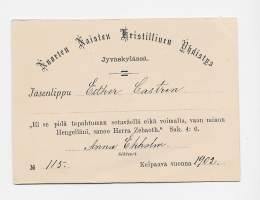 Nuorten Naisten Kristillinen Yhdistys
Jyväskylässä.
Jäsenlippu Esther Castren
„Ei se pidä tapahtuman sotaväellä eikä voimalla, vaan minun
Hengelläni, sanoo Herra Zebaoth.” Sak. 4: 6.
Anna Ekholm
Sihteeri
№ 115. Kelpaava vuonna 1902.